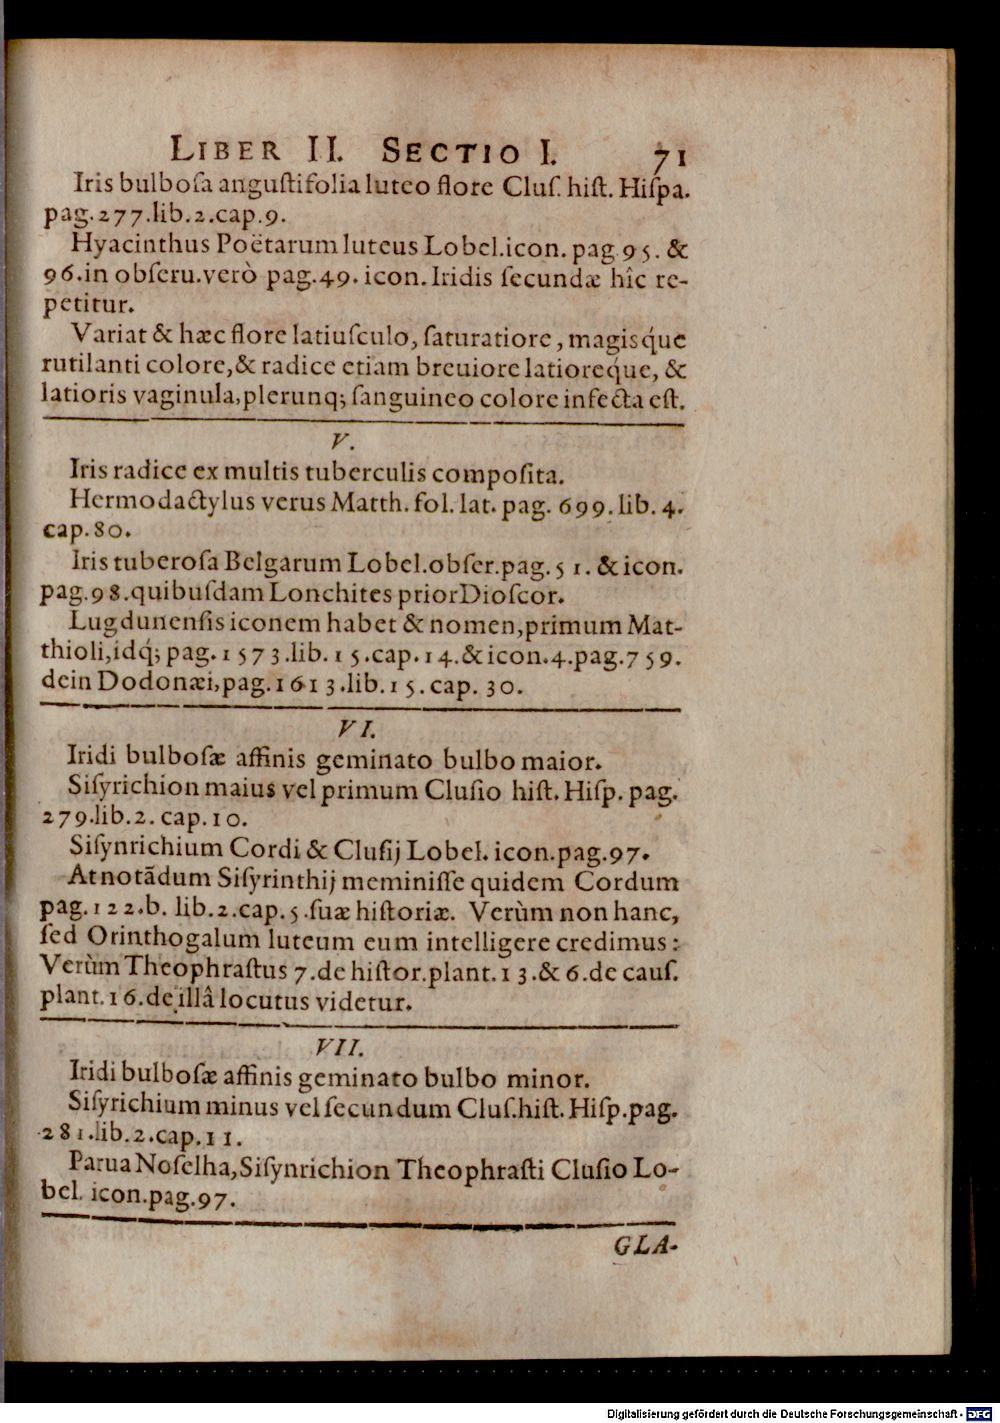 LIBER II. SECTIO I. 71
Iris bulboſa anguſtifolia luteo flore Cluſ. hiſt. Hiſpa.
pag. 277. lib. 2. cap. 9.
Hyacinthus Poëtarum luteus Lobel. icon. pag 95. &
96. in obſeru. verò pag. 49. icon. Iridis ſecundæ hîc re-
petitur.
Variat & hæc flore latiuſculo, ſaturatiore, magisq́ue
rutilanti colore, & radice etiam breuiore latioreq́ue, &
latioris vaginula, plerunq; ſanguineo colore infecta eſt.
V.
Iris radice ex multis tuberculis compoſita.
Hermodactylus verus Matth. fol. lat. pag. 699. lib. 4.
cap. 80.
Iris tuberoſa Belgarum Lobel. obſer. pag. 51. & icon.
pag. 98. quibuſdam Lonchites prior Dioſcor.
Lugdunenſis iconem habet & nomen, primum Mat-
thioli, idq́; pag. 1573. lib. 15. cap. 14. & icon. 4. pag. 759.
dein Dodonæi, pag. 1613. lib. 15. cap. 30.
VI.
Iridi bulboſæ affinis geminato bulbo maior.
Siſyrichion maius vel primum Cluſio hiſt. Hiſp. pag.
279. lib. 2. cap. 10.
Siſynrichium Cordi & Cluſij Lobel. icon. pag. 97.
At notãdum Siſyrinthij meminiſſe quidem Cordum
pag. 122. b. lib. 2. cap. 5. ſuæ hiſtoriæ. Verùm non hanc,
ſed Orinthogalum luteum eum intelligere credimus:
Verùm Theophraſtus 7. de hiſtor. plant. 13. & 6. de cauſ.
plant. 16. de illâ locutus videtur.
VII.
Iridi bulboſæ affinis geminato bulbo minor.
Siſyrichium minus vel ſecundum Cluſ. hiſt. Hiſp. pag.
281. lib. 2. cap. 11.
Parua Noſelha, Siſynrichion Theophraſti Cluſio Lo-
bel. icon. pag. 97.
GLA-
Digitalisierung gefördert durch die Deutsche Forschungsgemeinschaft - DFG